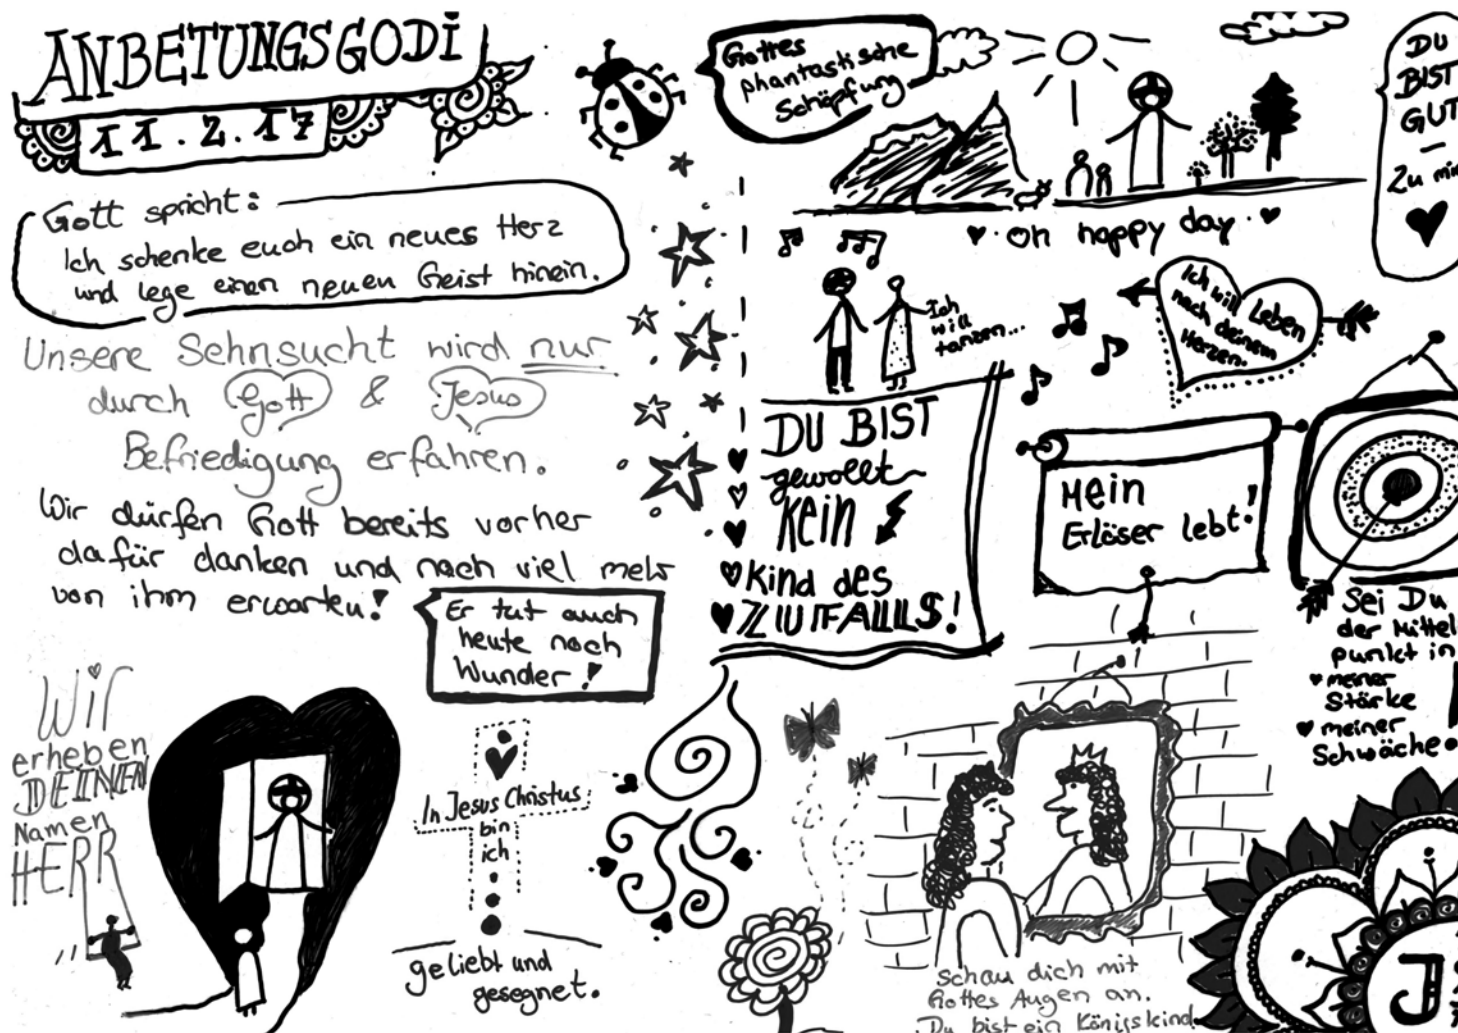 ANBETUNGSGODI
11.2.17
Gott spricht:
Ich schenke euch ein neues Herz
und lege einen neuen Geist hinein.
Unsere Sehnsucht wird nur
durch Gott & Jesus
Befriedigung erfahren.
Wir dürfen Gott bereits vorher
dafür danken und noch viel mehr
von ihm erwarten!
Er tut auch
heute noch
Wunder!
Wir
erheben
DEINEN
Namen
HERR
In Jesus Christus
bin
ich
geliebt und
gesegnet.
Gottes
phantastische
Schöpfung
oh happy day
Ich
will
tanzen...
DU BIST
gewollt
kein
Kind des
ZUFALLS!
DU
BIST
GUT
-
Zu mir
Ich will Leben
nach deinem
Herzen.
Mein
Erlöser lebt!
Sei Du
der Mittel
punkt in
meiner
Stärke
meiner
Schwäche
Schau dich mit
Gottes Augen an.
Du bist ein Königskind
J